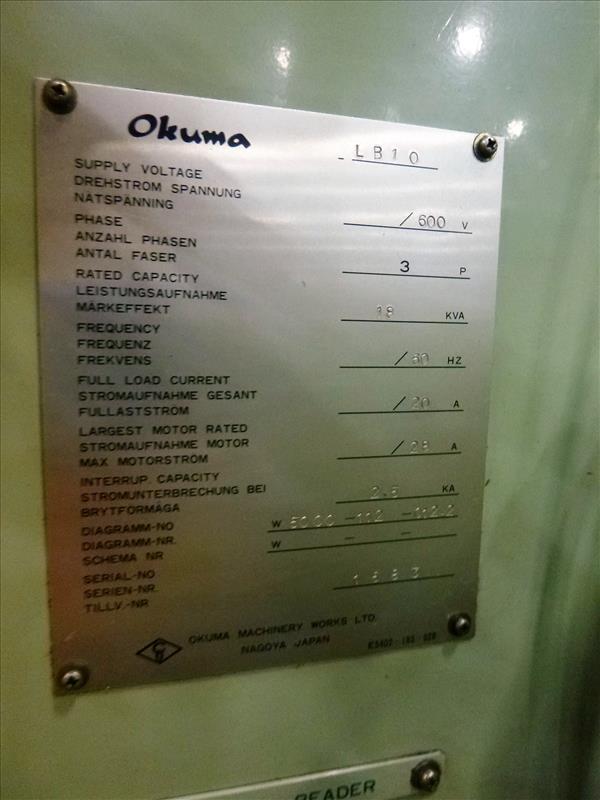 Okuma
- LB10
SUPPLY VOLTAGE
DREHSTROM SPANNUNG
NÄTSPÄNNING
/600 V
PHASE
ANZAHL PHASEN
ANTAL FASER
3 P
RATED CAPACITY
LEISTUNGSAUFNAHME
MÄRKEFFEKT
18 KVA
FREQUENCY
FREQUENZ
FREKVENS
/60 HZ
FULL LOAD CURRENT
STROMAUFNAHME GESANT
FULLASTSTRÖM
/20 A
LARGEST MOTOR RATED
STROMAUFNAHME MOTOR
MAX MOTORSTRÖM
/28 A
INTERRUP. CAPACITY
STROMUNTERBRECHUNG BEI
BRYTFÖRMÅGA
2.5 KA
DIAGRAMM-NO
DIAGRAMM-NR.
SCHEMA NR
W 5000 -112 -112.2
W - -
SERIAL-NO
SERIEN-NR.
TILLV.-NR
1683
OKUMA MACHINERY WORKS LTD.
NAGOYA JAPAN
READER